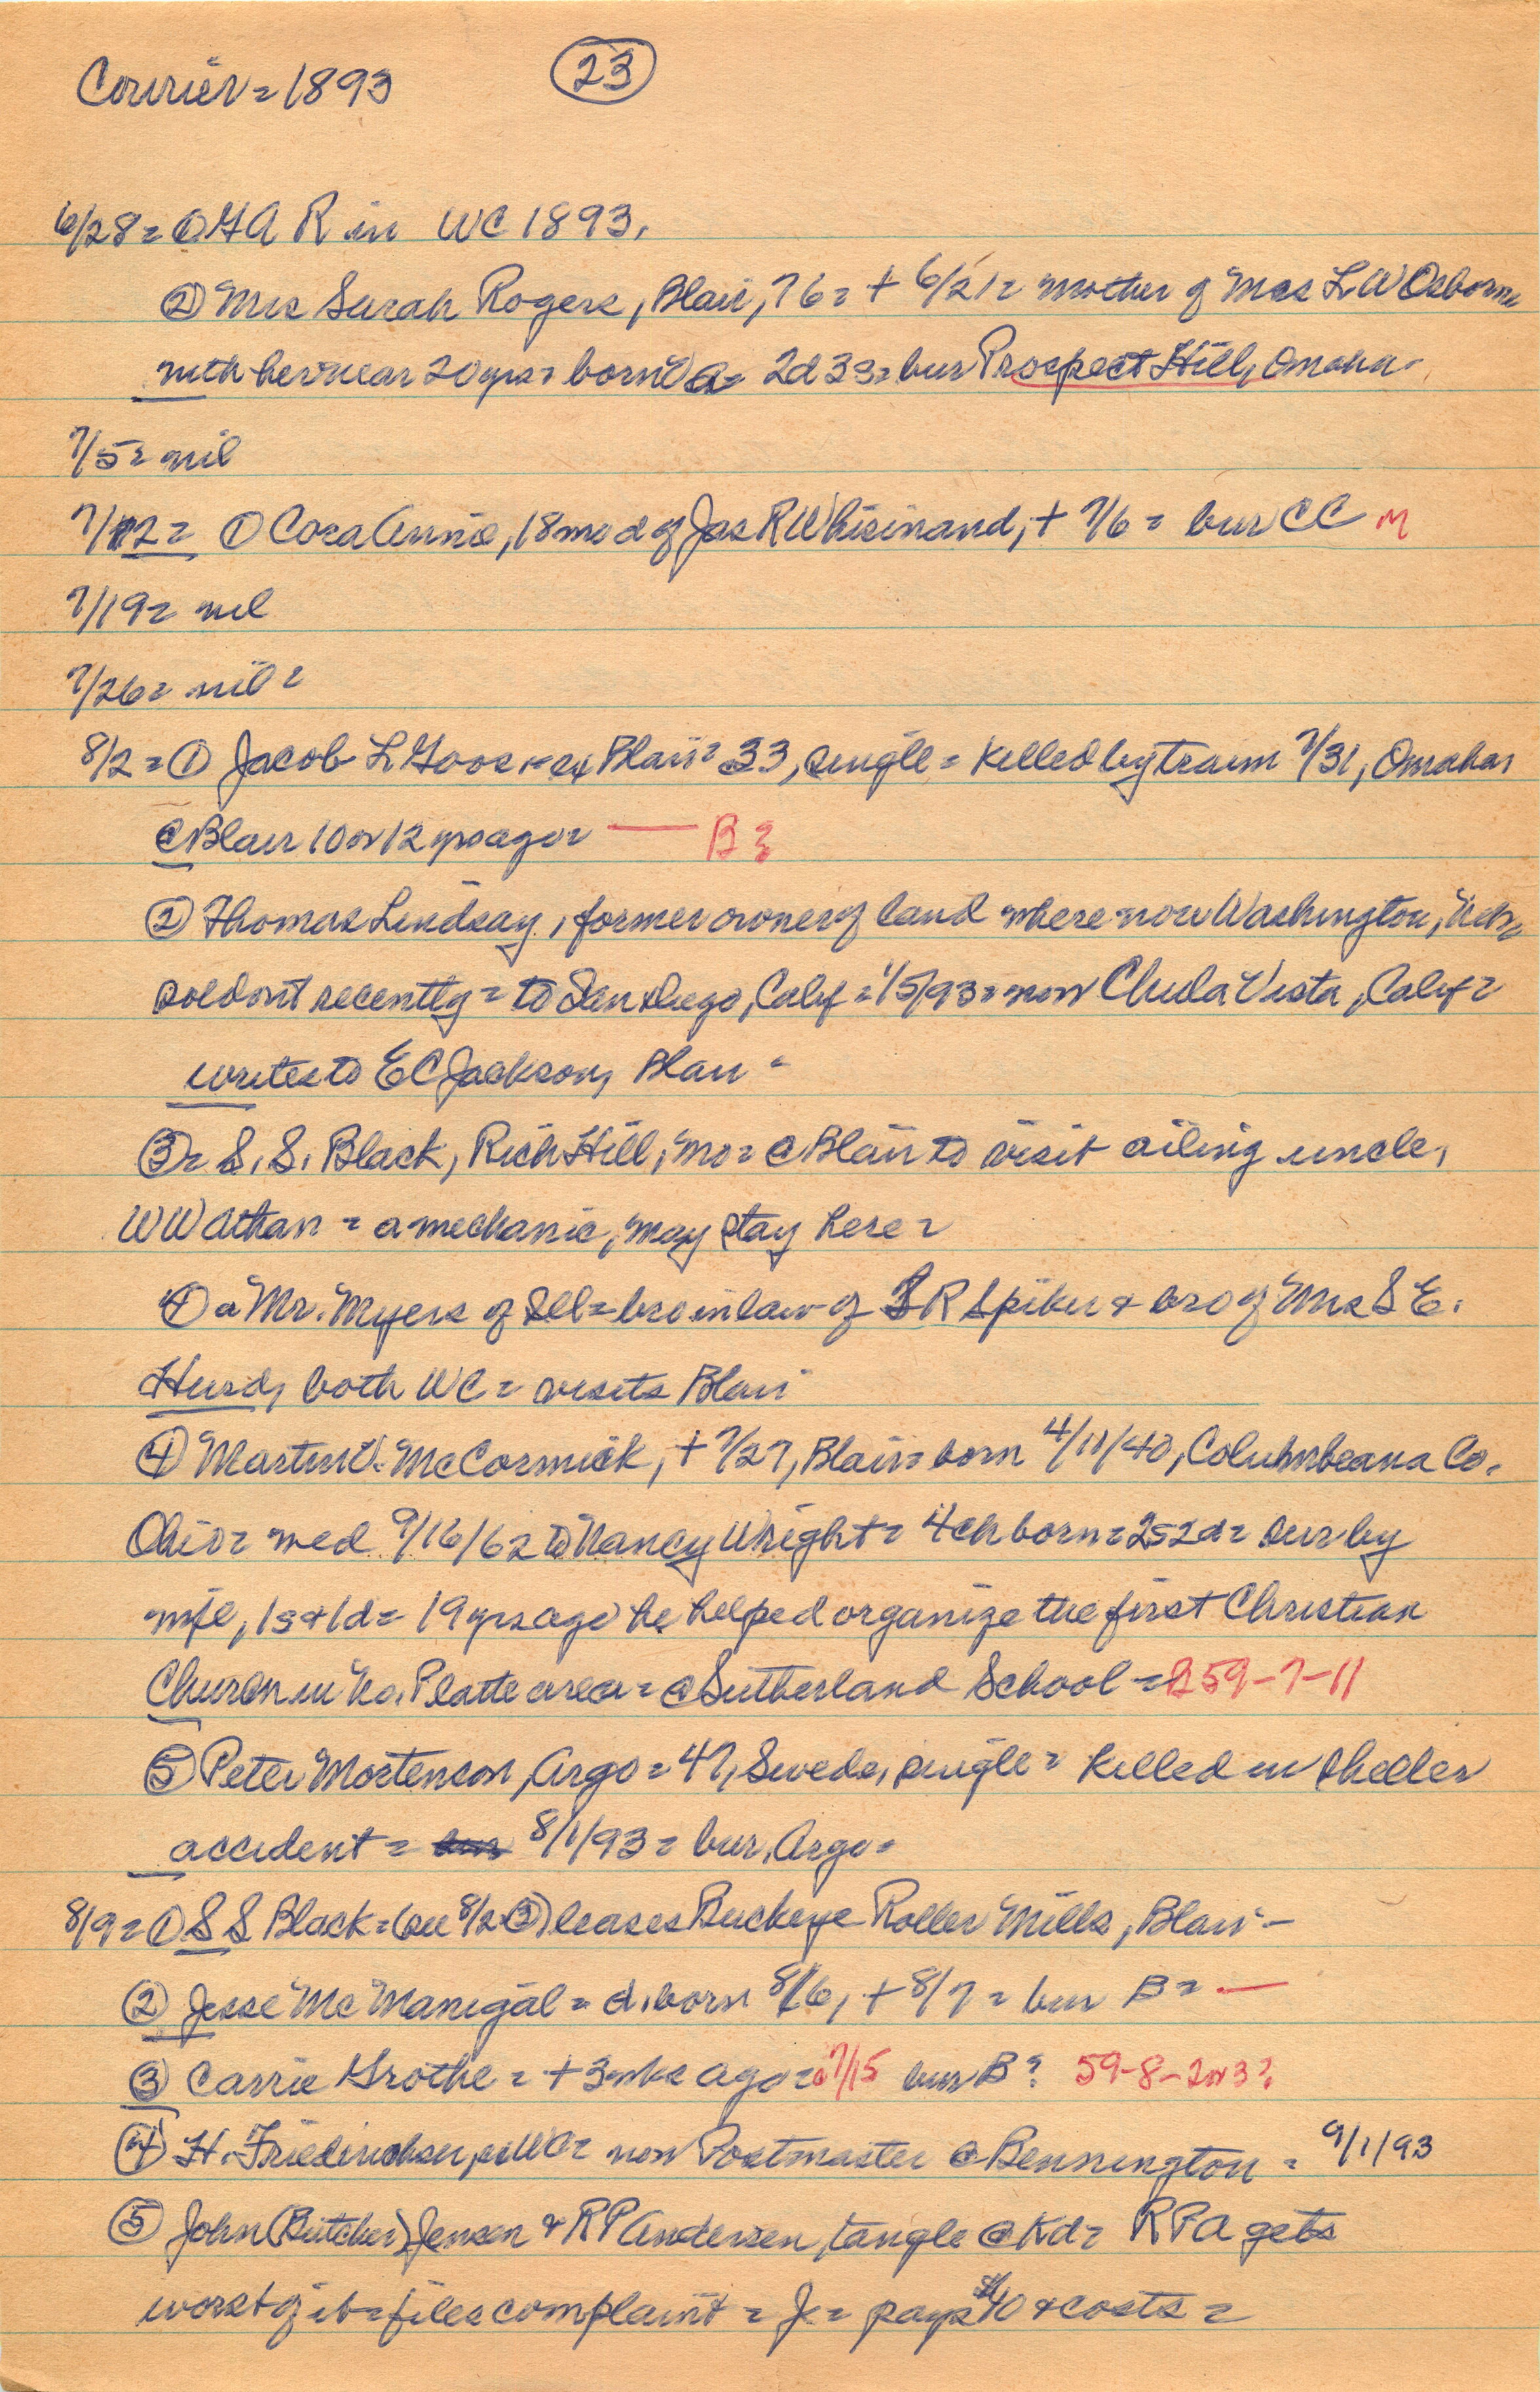 Courier = 1893 23
6/28 = ① GAR in WC 1893.
② Mrs Sarah Rogers, Blair, 76 = + 6/21 = mother of Mrs L W Osborne
with her near 20 yrs = born Va = 2d 3s = bur Prospect Hill, Omaha =
7/5 = nil
7/12 = ① Cora Annie, 18 mo d of Jas R Whisinand, + 7/6 = bur CC M
7/19 = nil
7/26 = nil =
8/2 = ① Jacob L = ex Blair = 33, single = killed by train 7/31, Omaha =
@ Blair 10 or 12 yrs ago = — B
② Thomas Lindsay, former owner of land where now Washington, Neb =
sold out recently = to San Diego, Calif = 1/5/93 = now Chula Vista, Calif =
writes to E C Jackson, Blair =
③ = S. S. Black, Rich Hill, Mo = @ Blair to visit ailing uncle,
W W Athan = a mechanic, may stay here =
④ a Mr. Myers of Ill = bro in law of S R Spiker & bro of Mrs S E.
Hurd, both WC = visits Blair
④ Martin V. McCormick, + 7/27, Blair = born 4/11/40, Columbeana Co.
Ohio = med 9/16/62 to Nancy Wright = 4 ch born = 2s 2d = sur by
wife, 1s & 1d = 19 yrs ago he helped organize the first Christian
Church in No. Platte area = @ Sutherland School = B 59-7-11
⑤ Peter Mortenson, Argo = 47, Swede, single = killed in sheller
accident = 8/1/93 = bur. Argo =
8/9 = ① S S Black = (see 8/2 ③) leases Buckeye Roller Mills, Blair —
② Jesse McManigal = d. born 8/6, + 8/7 = bur B = —
③ Carrie Grothe = + 3 wks ago = 7/15 bur B? 59-8-2 or 3?
④ H. Friedrichsen, ex WC = now Postmaster @ Bennington = 9/1/93
⑤ John (Butcher) Jensen & R P Andersen, tangle @ Kd = R P A gets
worst of it = files complaint = J = pays $10 & costs =